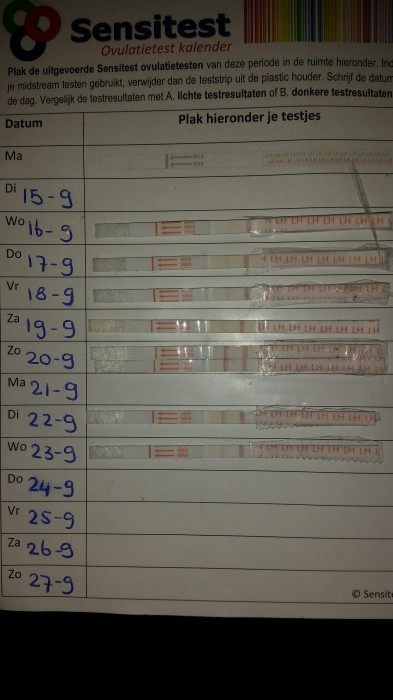 Sensitest
Ovulatietest kalender
Plak de uitgevoerde Sensitest ovulatietesten van deze periode in de ruimte hieronder. Ind
je midstream testen gebruikt, verwijder dan de teststrip uit de plastic houder. Schrijf de datum
de dag. Vergelijk de testresultaten met A. lichte testresultaten of B. donkere testresultaten
Datum Plak hieronder je testjes
Ma
Di 15-9
Wo 16-9 LH LH LH LH LH LH
Do 17-9 LH LH LH LH LH LH LH
Vr 18-9 LH LH LH LH LH LH
Za 19-9 LH LH LH LH LH LH LH
Zo 20-9
Ma 21-9
Di 22-9 LH LH LH LH LH LH
Wo 23-9 LH LH LH LH LH LH
Do 24-9
Vr 25-9
Za 26-9
Zo 27-9
© Sensit